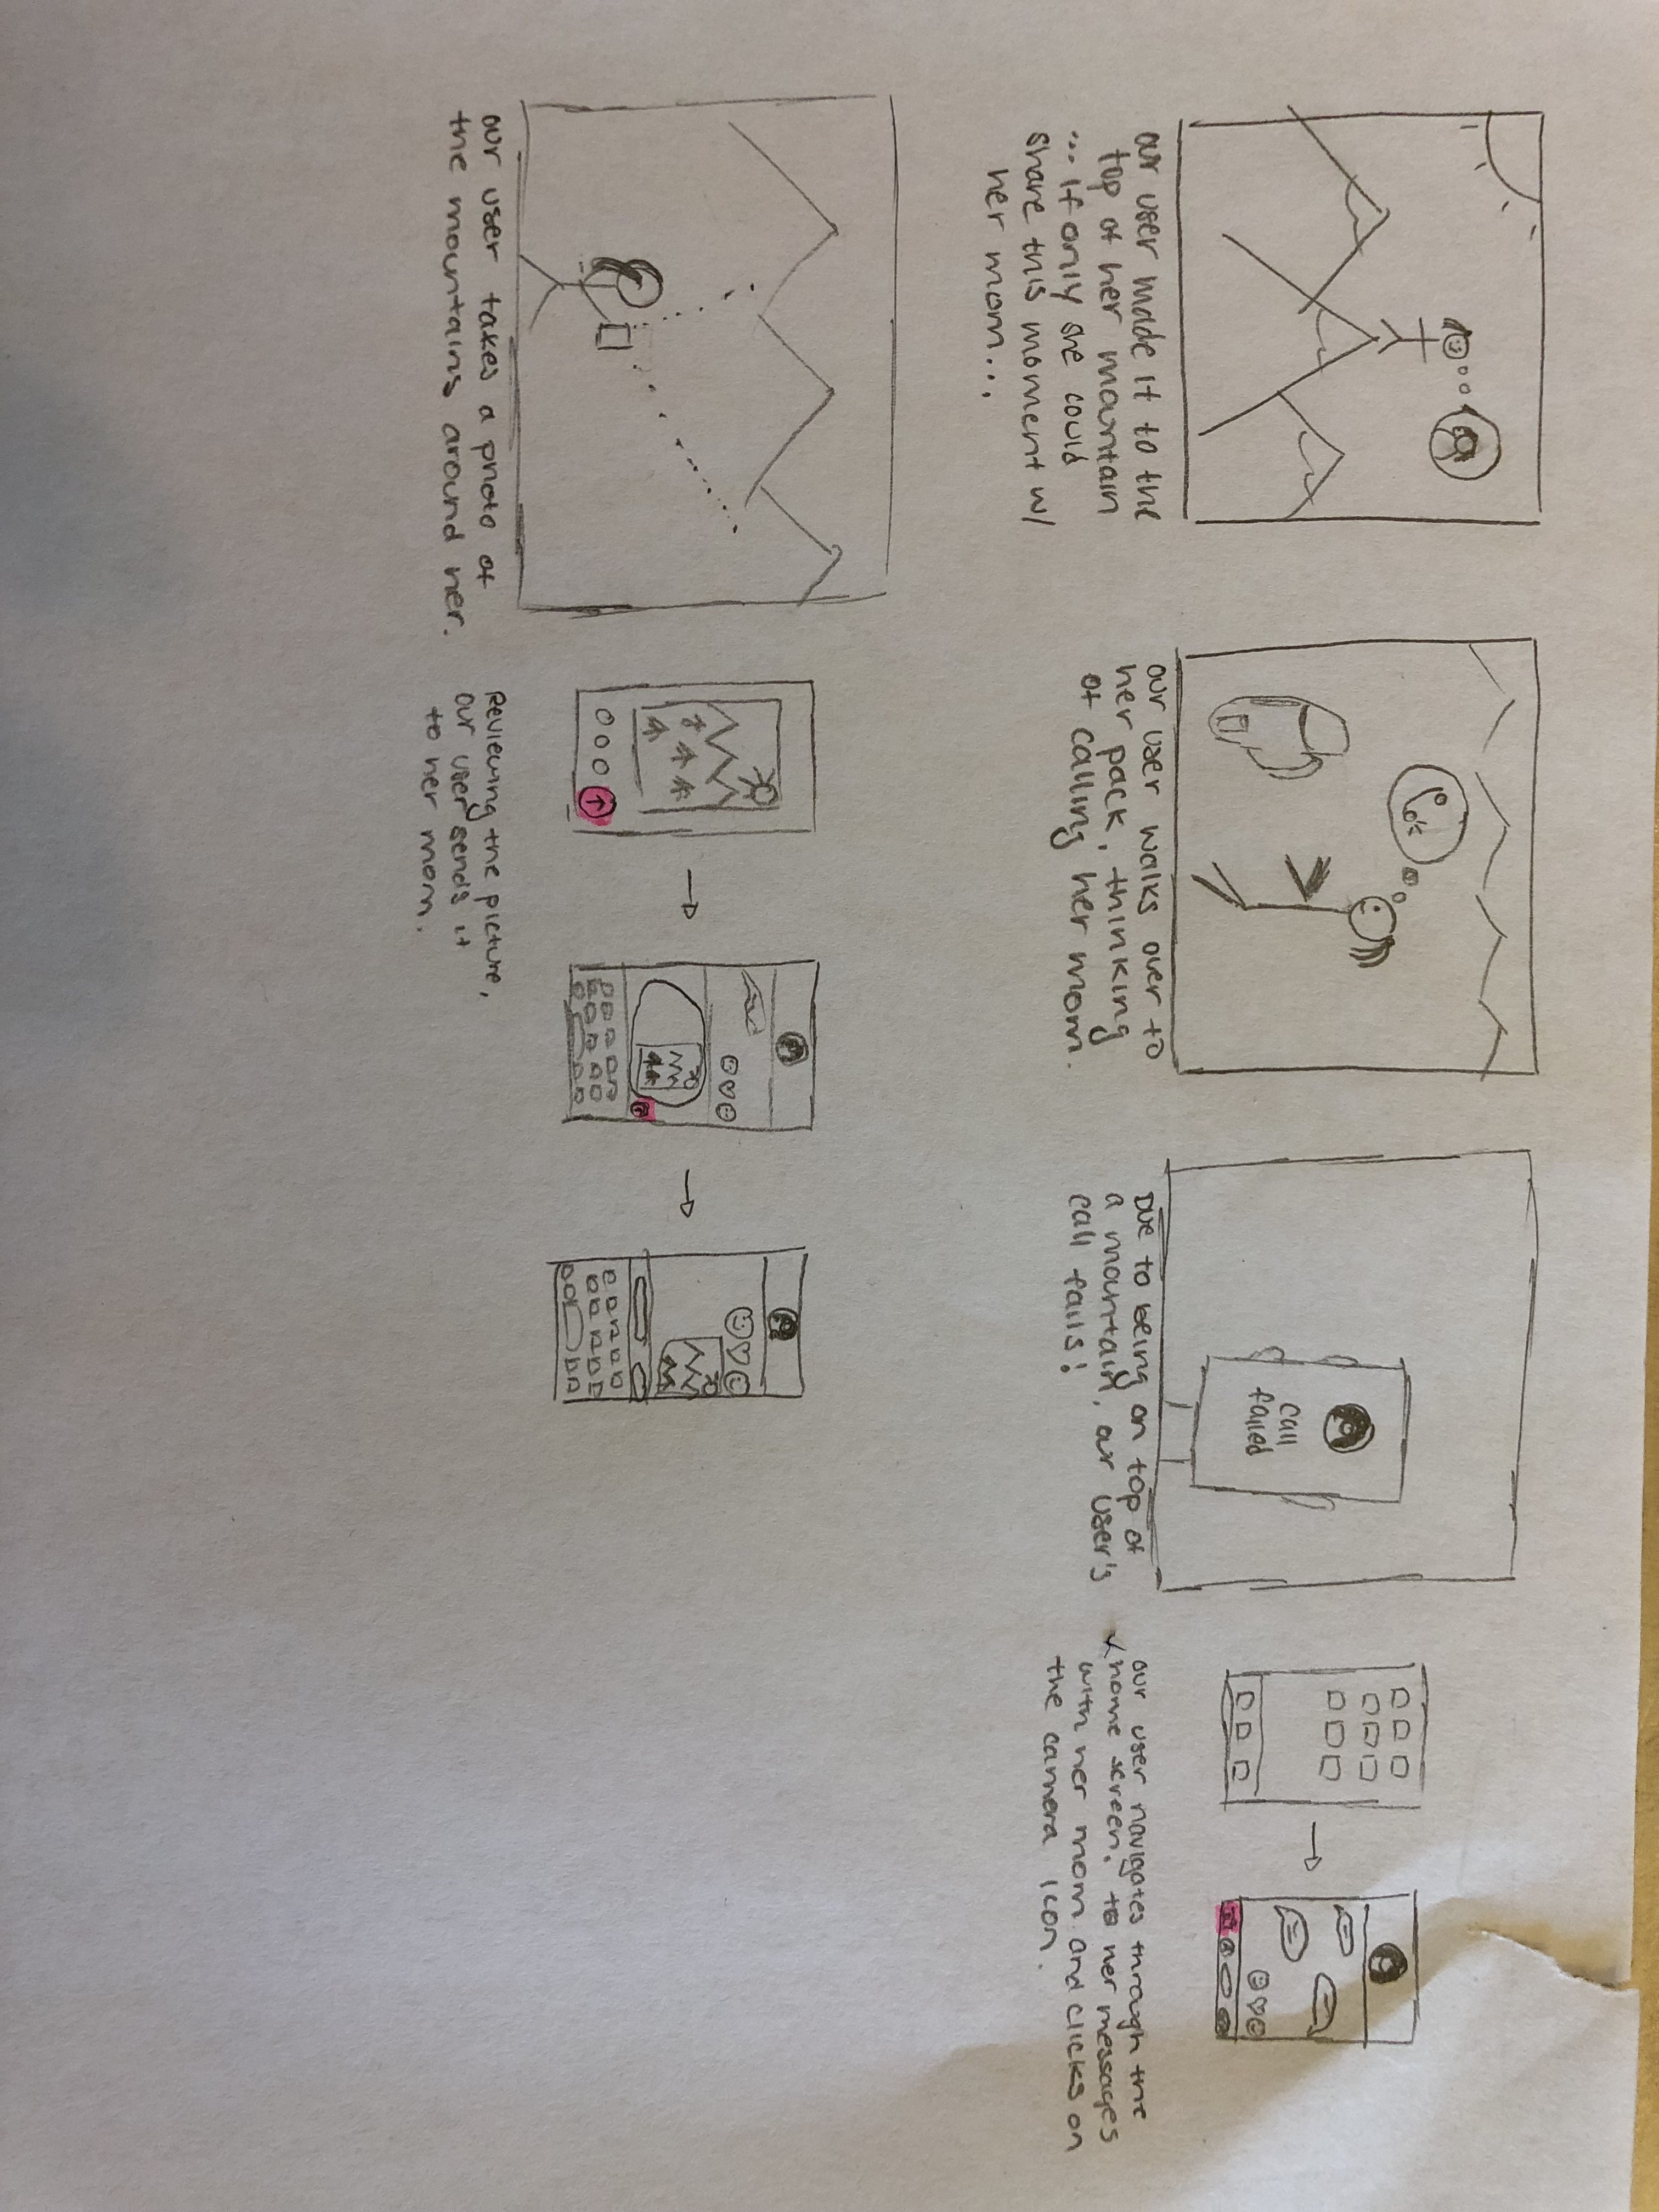 our user made it to the
top of her mountain
... if only she could
share this moment w/
her mom...
our user walks over to
her pack, thinking
of calling her mom.
call
failed
Due to being on top of
a mountain, our user's
call fails!
our user navigates through the
home screen, to her messages
with her mom and clicks on
the camera icon.
our user takes a photo of
the mountains around her.
Reviewing the picture,
our user sends it
to her mom.